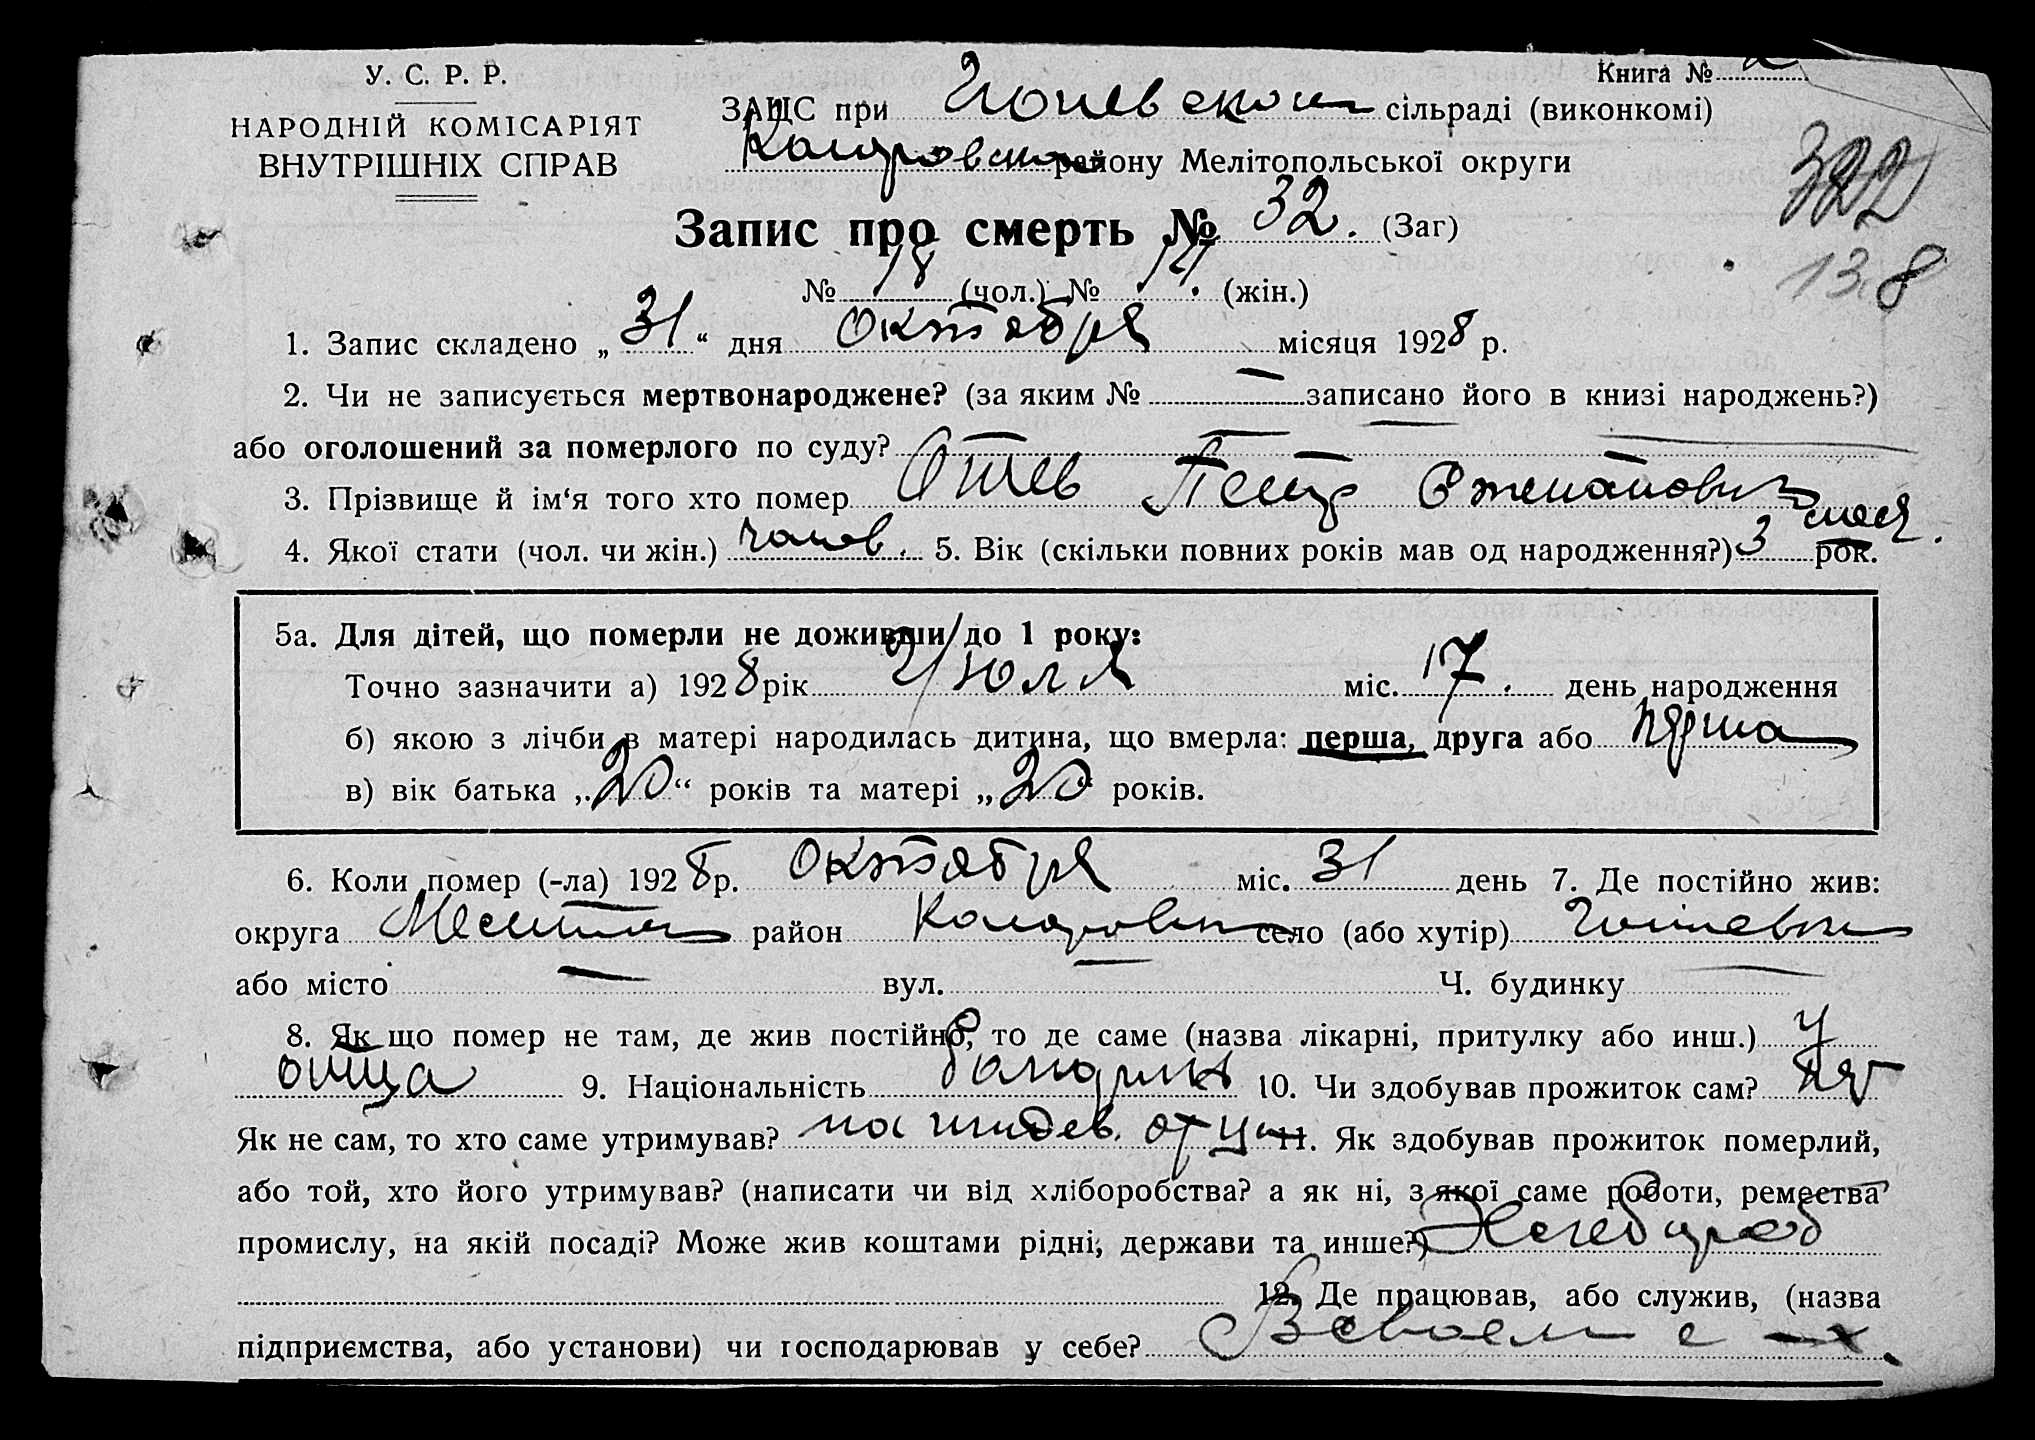 У. С. Р. Р.
НАРОДНІЙ КОМІСАРІЯТ
ВНУТРІШНІХ СПРАВ
Книга №
ЗАЦС при сільраді (виконкомі)
району Мелітопольської округи
322
13.8
Запис про смерть № 32. (Заг)
№ 18 (чол.) № 14. (жін.)
1. Запис складено „31“ дня октября місяця 1928 р.
2. Чи не записується мертвонароджене? (за яким № — записано його в книзі народжень?)
або оголошений за померлого по суду?
3. Прізвище й ім‘я того хто помер Петр
4. Якої стати (чол. чи жін.) 5. Вік (скільки повних років мав од народження?) 3 рок.
5а. Для дітей, що померли не доживши до 1 року:
Точно зазначити а) 1928 рік Июля міс. 17. день народження
б) якою з лічби в матері народилась дитина, що вмерла: перша, друга або перша
в) вік батька „20“ років та матері „20“ років.
6. Коли помер (-ла) 1928 р. октября міс. 31 день 7. Де постійно жив:
округа район село (або хутір)
або місто — вул. — Ч. будинку —
8. Як що помер не там, де жив постійно, то де саме (назва лікарні, притулку або инш.) У
отца 9. Національність болгарин 10. Чи здобував прожиток сам? Нет
Як не сам, то хто саме утримував? на иждев. отца 11. Як здобував прожиток померлий,
або той, хто його утримував? (написати чи від хліборобства? а як ні, з якої саме роботи, ремества
промислу, на якій посаді? Може жив коштами рідні, держави та инше?) Хлебороб
12. Де працював, або служив, (назва
підприємства, або установи) чи господарював у себе? В своем с —х.